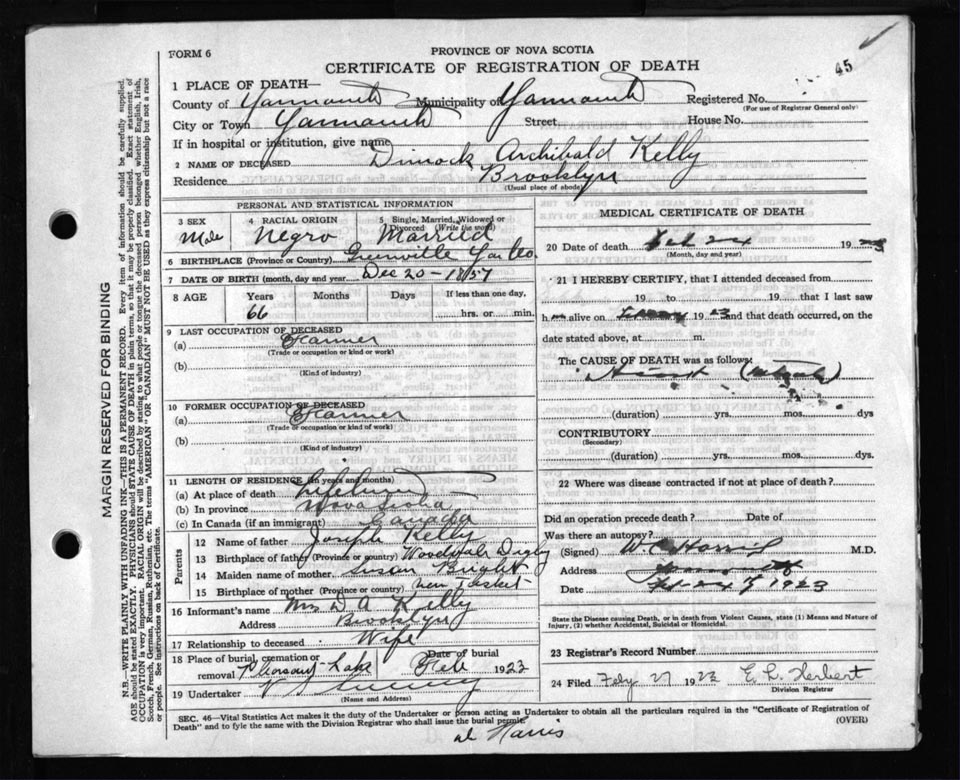 45
FORM 6
PROVINCE OF NOVA SCOTIA
CERTIFICATE OF REGISTRATION OF DEATH
1 PLACE OF DEATH—
County of Yarmouth Municipality of Yarmouth Registered No.
(For use of Registrar General only)
City or Town Yarmouth Street House No.
If in hospital or institution, give name
2 NAME OF DECEASED Dimock Archibald Kelly
Residence Brooklyn
(Usual place of abode)
PERSONAL AND STATISTICAL INFORMATION
3 SEX Male
4 RACIAL ORIGIN Negro
5 Single, Married, Widowed or Divorced (Write the word) Married
6 BIRTHPLACE (Province or Country) Greenville Yar Co.
7 DATE OF BIRTH (month, day and year) Dec 20 - 1857
8 AGE Years 66 Months Days If less than one day, hrs. or min.
9 LAST OCCUPATION OF DECEASED
(a) Farmer
(Trade or occupation or kind or work)
(b)
(Kind of industry)
10 FORMER OCCUPATION OF DECEASED
(a) Farmer
(Trade or occupation or kind of work)
(b)
(Kind of industry)
11 LENGTH OF RESIDENCE (in years and months)
(a) At place of death
(b) In province Nova Scotia
(c) In Canada (if an immigrant) Canada
Parents
12 Name of father Joseph Kelly
13 Birthplace of father (Province or country) Digby
14 Maiden name of mother Susan Bright
15 Birthplace of mother (Province or country) Tusket
16 Informant's name Mrs D A Kelly
Address Brooklyn
17 Relationship to deceased Wife
18 Place of burial, cremation or removal Pleasant Lake Date of burial Feb 1923
19 Undertaker
(Name and Address)
MEDICAL CERTIFICATE OF DEATH
20 Date of death Feb 24 1923
(Month, day and year)
21 I HEREBY CERTIFY, that I attended deceased from
19 to 19 that I last saw
h m alive on 1923 and that death occurred, on
date stated above, at m.
The CAUSE OF DEATH was as follows:
(duration) yrs. mos. dys
CONTRIBUTORY
(Secondary)
(duration) yrs. mos. dys.
22 Where was disease contracted if not at place of death?
Did an operation precede death? Date of
Was there an autopsy?
(Signed) M.D.
Address
Date Feb 24 1923
State the Disease causing Death, or in death from Violent Causes, state (1) Means and Nature of Injury, (2) whether Accidental, Suicidal or Homicidal.
23 Registrar's Record Number
24 Filed Feby 27 1923 E. L. Herbert
Division Registrar
SEC. 46—Vital Statistics Act makes it the duty of the Undertaker or person acting as Undertaker to obtain all the particulars required in the "Certificate of Registration of
Death" and to fyle the same with the Division Registrar who shall issue the burial permit.
(OVER)
MARGIN RESERVED FOR BINDING
N.B.—WRITE PLAINLY WITH UNFADING INK—THIS IS A PERMANENT RECORD. Every item of information should be carefully supplied.
AGE should be stated EXACTLY. PHYSICIANS should STATE CAUSE OF DEATH in plain terms, so that it may be properly classified. Exact statement of
OCCUPATION is very important. RACIAL ORIGIN will be described by stating to what people or tongue the deceased person belonged whether English, Irish,
Scotch, French, German, Russian, Ruthenian, etc. The terms "AMERICAN" OR "CANADIAN" MUST NOT BE USED as they express citizenship but not a race
or people. See instructions on back of Certificate.